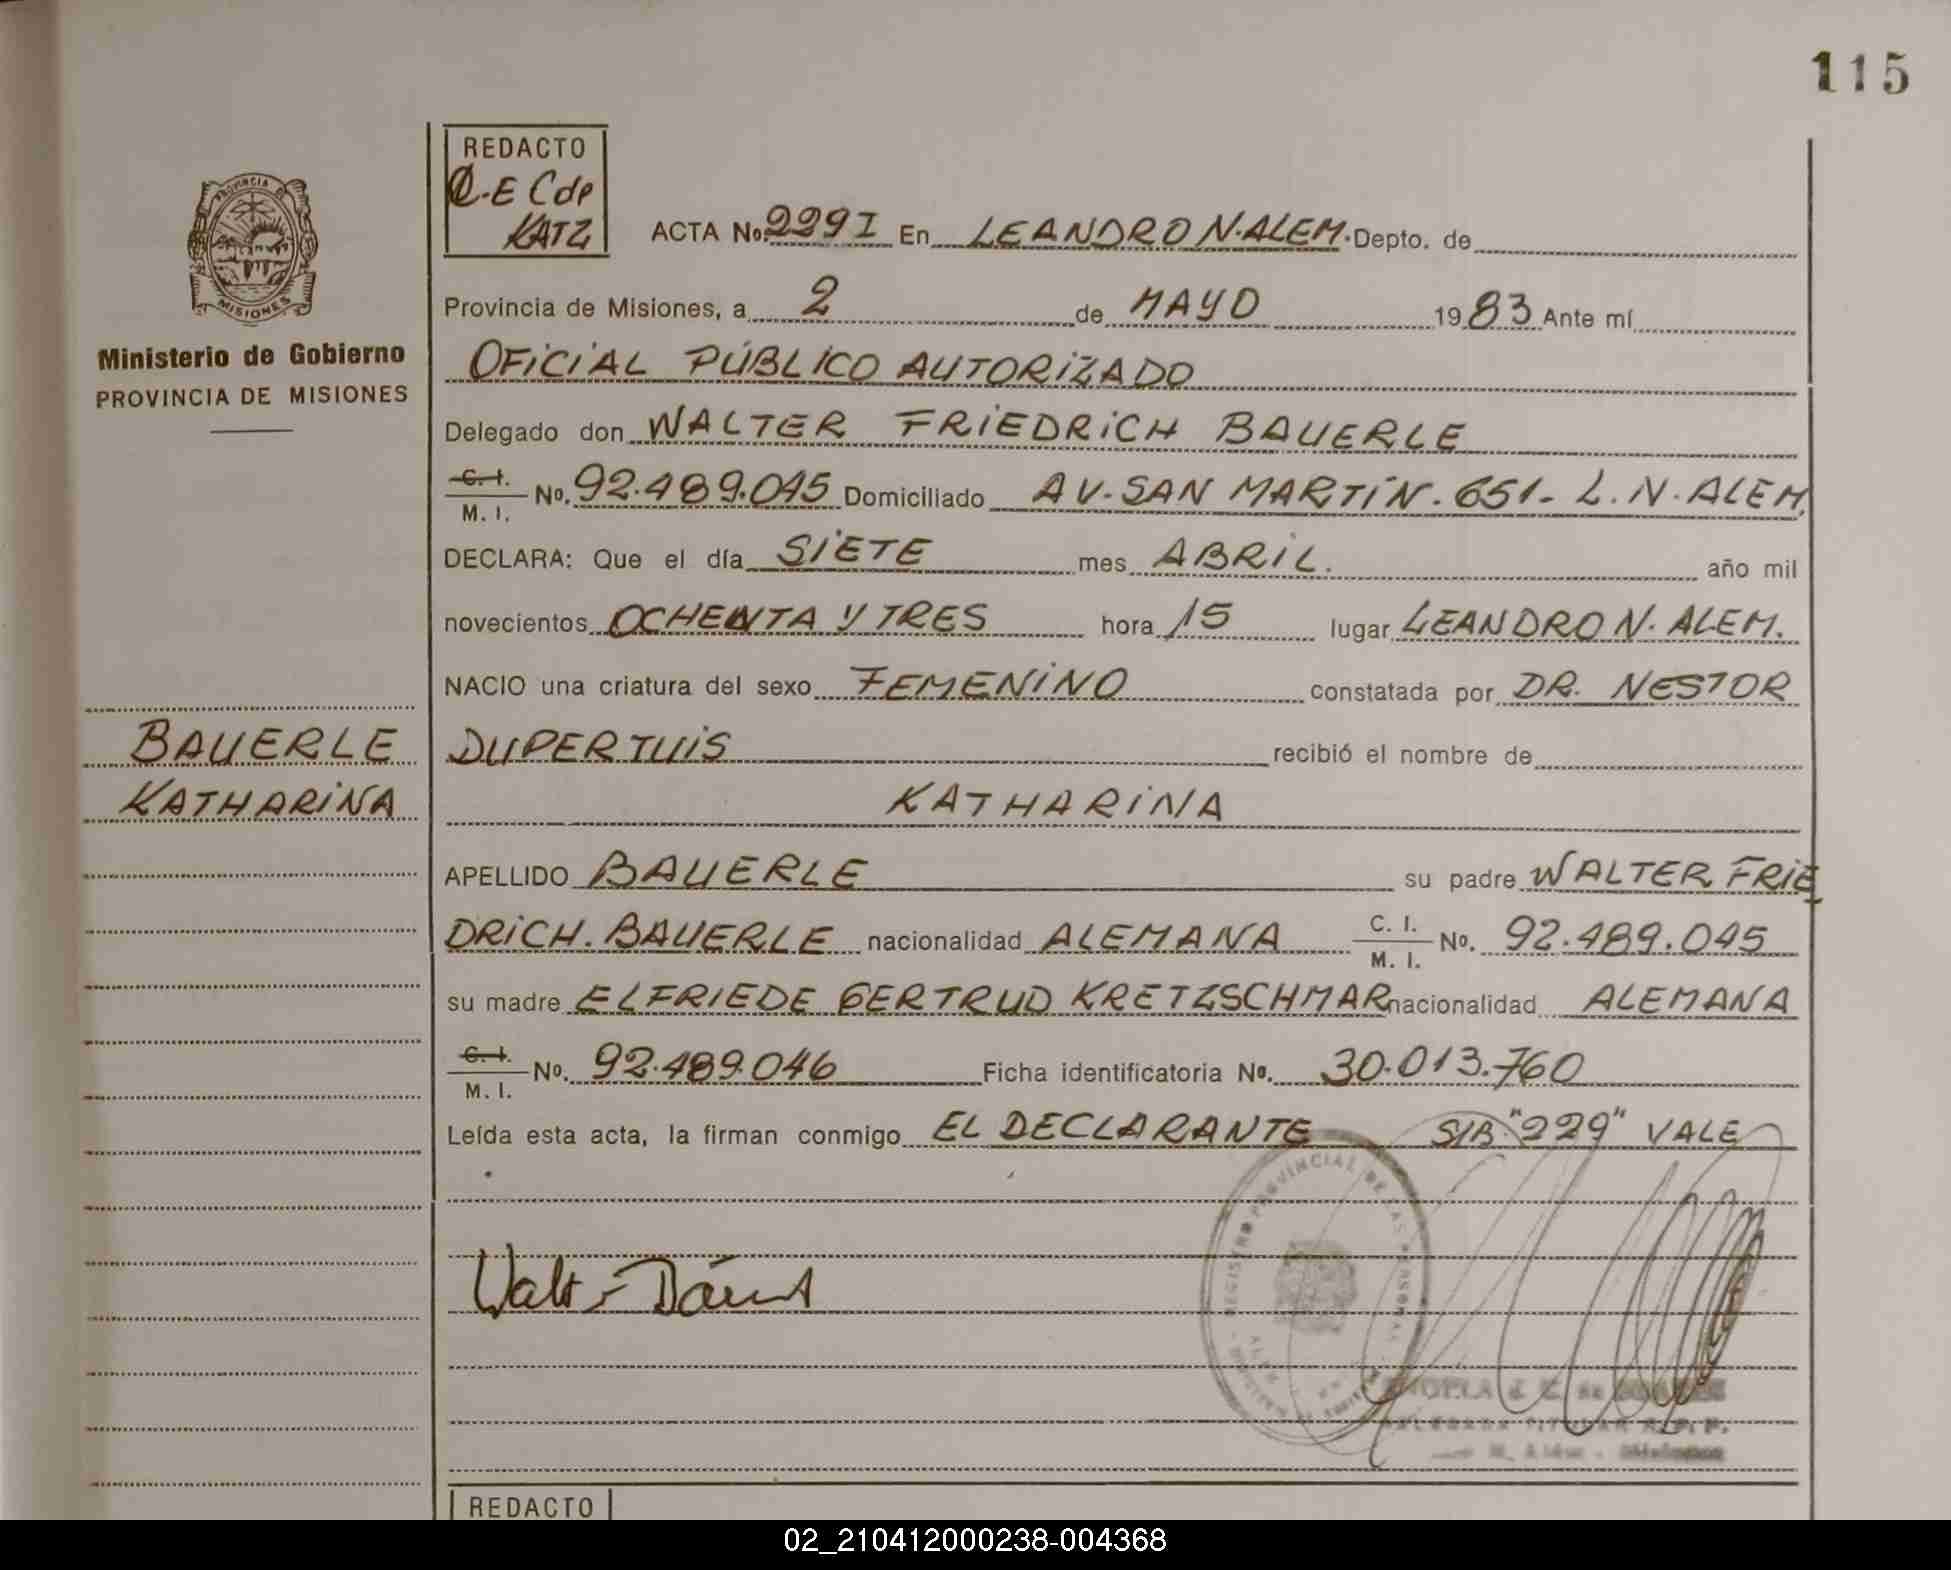 115
REDACTO
KATZ
ACTA No. 229 I En LEANDRO N. ALEM. Depto. de
Provincia de Misiones, a 2 de MAYO 1983 Ante mí
OFICIAL PÚBLICO AUTORIZADO
Ministerio de Gobierno
PROVINCIA DE MISIONES
Delegado don WALTER FRIEDRICH BAUERLE
C. I. / M. I. No. 92.489.045 Domiciliado AV. SAN MARTÍN. 651- L. N. ALEM.
DECLARA: Que el día SIETE mes ABRIL. año mil
novecientos OCHENTA Y TRES hora 15 lugar LEANDRO N. ALEM.
NACIO una criatura del sexo FEMENINO constatada por DR. NESTOR
DUPERTUIS recibió el nombre de
KATHARINA
BAUERLE
KATHARINA
APELLIDO BAUERLE su padre WALTER FRIE
DRICH. BAUERLE nacionalidad ALEMANA C. I. / M. I. No. 92.489.045
su madre ELFRIEDE GERTRUD KRETZSCHMAR nacionalidad ALEMANA
C. I. / M. I. No. 92.489.046 Ficha identificatoria No. 30.013.760
Leída esta acta, la firman conmigo EL DECLARANTE S/B "229" VALE
REGISTRO PROVINCIAL DE LAS PERSONAS
REDACTO
02_210412000238-004368